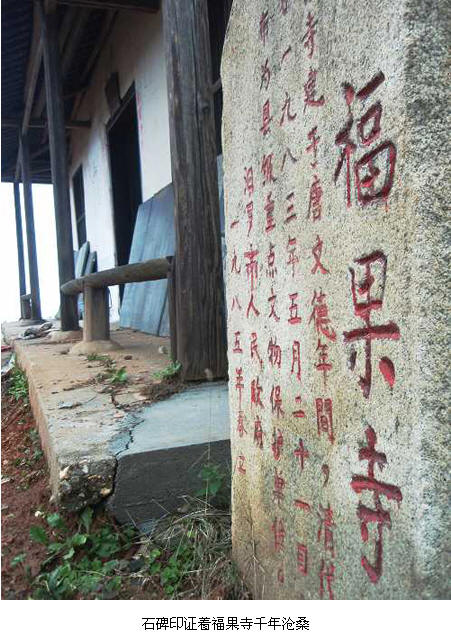 福果寺
寺建于唐文德年間，清代
一九八三年五月二十一日
布为县级重点文物保护单位。
汨罗市人民政府
一九八五年春立
石碑印证着福果寺千年沧桑